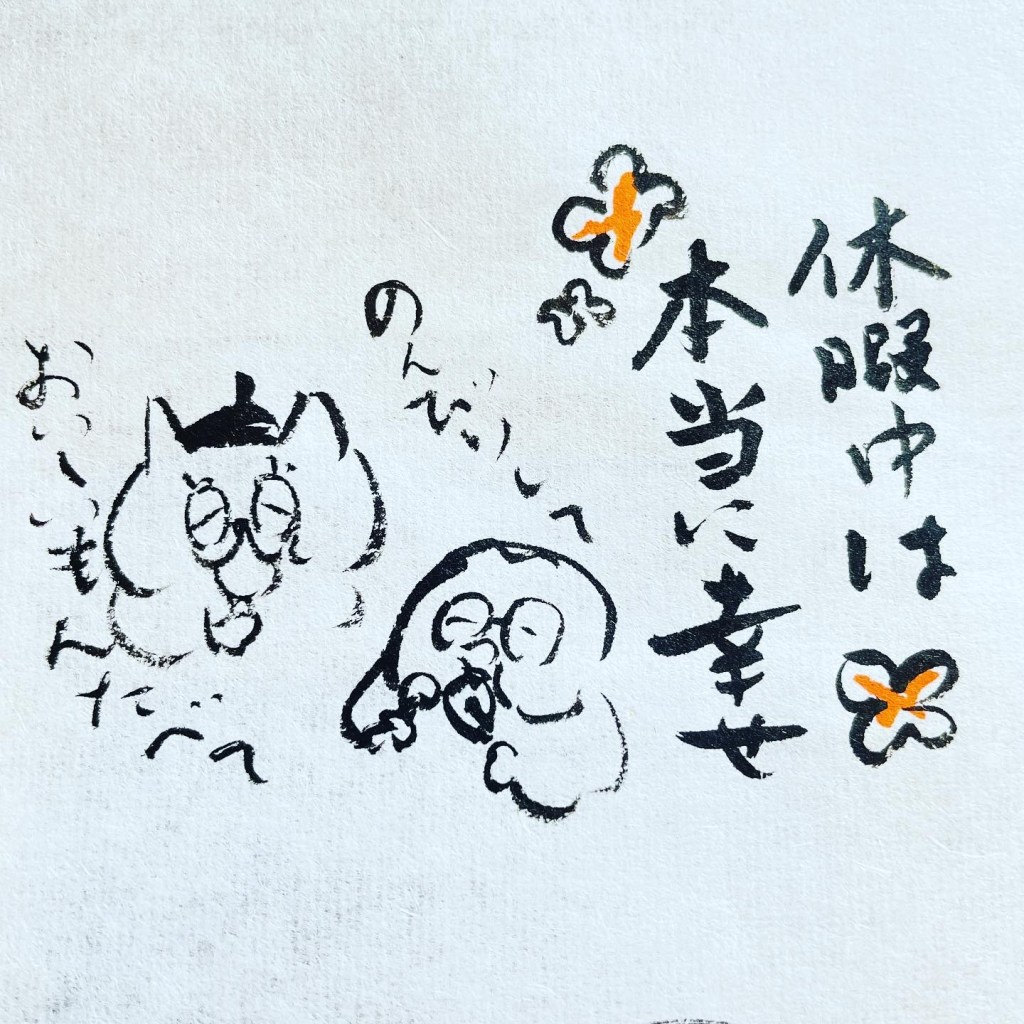 休暇中は
本当に幸せ
のんびりして
おいしいもんたべて